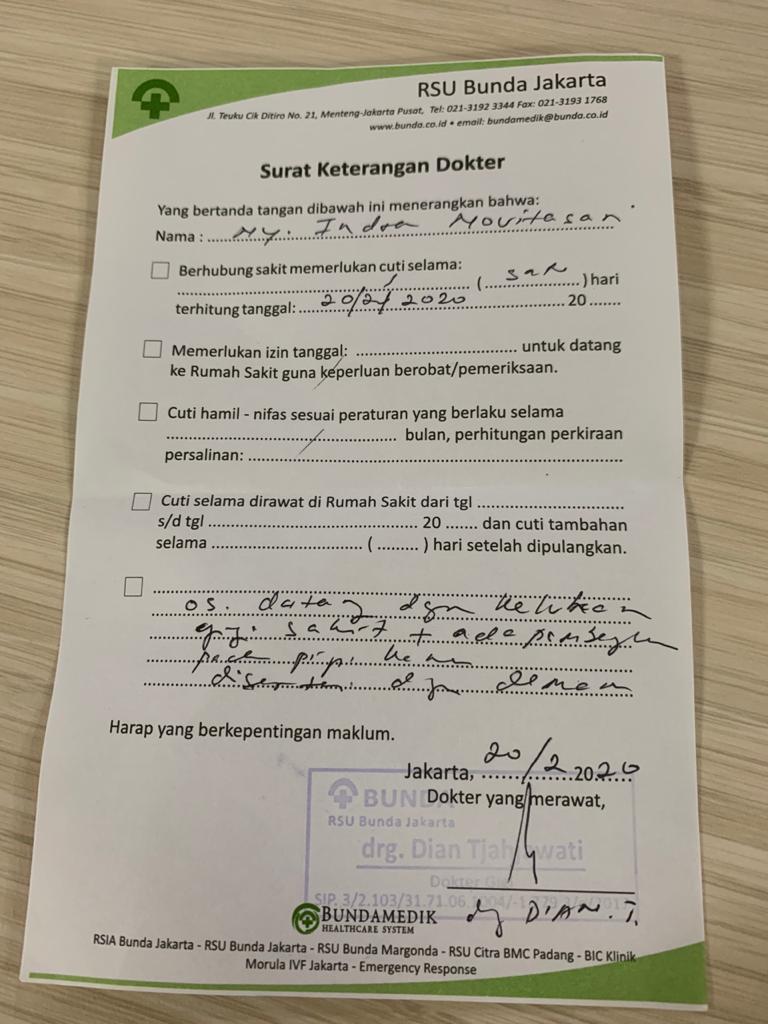 RSU Bunda Jakarta
Jl. Teuku Cik Ditiro No. 21, Menteng-Jakarta Pusat, Tel: 021-3192 3344 Fax: 021-3193 1768
www.bunda.co.id • email: bundamedik@bunda.co.id
Surat Keterangan Dokter
Yang bertanda tangan dibawah ini menerangkan bahwa:
Nama : Ny. Indra Novitasari
Berhubung sakit memerlukan cuti selama:
1 (satu) hari
terhitung tanggal: 20/2/2020 20.......
Memerlukan izin tanggal: .................................. untuk datang
ke Rumah Sakit guna keperluan berobat/pemeriksaan.
Cuti hamil - nifas sesuai peraturan yang berlaku selama
.................................. bulan, perhitungan perkiraan
persalinan: ..................................
Cuti selama dirawat di Rumah Sakit dari tgl ..........................
s/d tgl .................................. 20 ....... dan cuti tambahan
selama .......................... ( ......... ) hari setelah dipulangkan.
os. datang dgn keluhan
gigi sakit + ada
pada pipi
disertai dgn demam
Harap yang berkepentingan maklum.
Jakarta, 20/2 2020
Dokter yang merawat,
BUNDA
RSU Bunda Jakarta
drg. Dian
Dokter
SIP. 3/2.103/31.71.06
drg DIAN. T.
BUNDAMEDIK
HEALTHCARE SYSTEM
RSIA Bunda Jakarta - RSU Bunda Jakarta - RSU Bunda Margonda - RSU Citra BMC Padang - BIC Klinik
Morula IVF Jakarta - Emergency Response